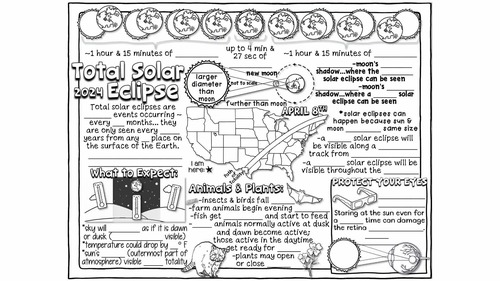 ~1 hour & 15 minutes of
up to 4 min &
27 sec of
~1 hour & 15 minutes of
Total Solar
2024 Eclipse
larger
diameter
than
moon
new moon
not to scale
further than moon
-moon's
shadow...where the
solar eclipse can be seen
-moon's
shadow...where a
solar eclipse can be seen
Total solar eclipses are
events occurring ~
every ___ months... they
are only seen every
years from any ___ place on
the surface of the Earth.
APRIL 8TH
*solar eclipses can
happen because sun &
moon ___ same size
-a ___ solar eclipse will
be visible along a
track from
-a ___ solar eclipse will be
visible throughout the
I am
here:
What to Expect:
*sky will ___ as if it is dawn
or dusk ( ___ visible)
*temperature could drop by __° F
*sun's ___ (outermost part of
atmosphere) visible ___ totality
Animals & Plants:
-insects & birds fall
-farm animals begin evening
-fish get ___ and start to feed
animals normally active at dusk
and dawn become active;
those active in the daytime
get ready for
-plants may open
or close
PROTECT YOUR EYES
Staring at the sun even for
a ___ time can damage
the retina